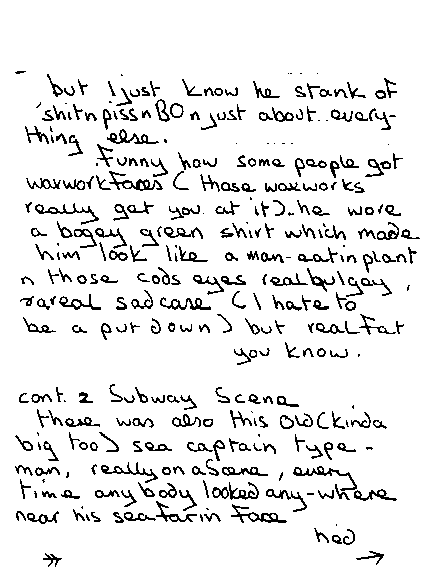 but I just know he stank of
shitnpissnBO n just about every-
thing else.
Funny how some people got
waxworkfaces ( those waxworks
really get you at it). he wore
a bogey green shirt which made
him look like a man-eatin plant
n those cods eyes realbulgey,
rareal sadcase ( I hate to
be a put down ) but realfat
you know.
cont. 2 Subway Scene
there was also this old (kinda
big too) sea captain type-
man, really on a Scene, every
time anybody looked any-where
near his seafarin face
he'd